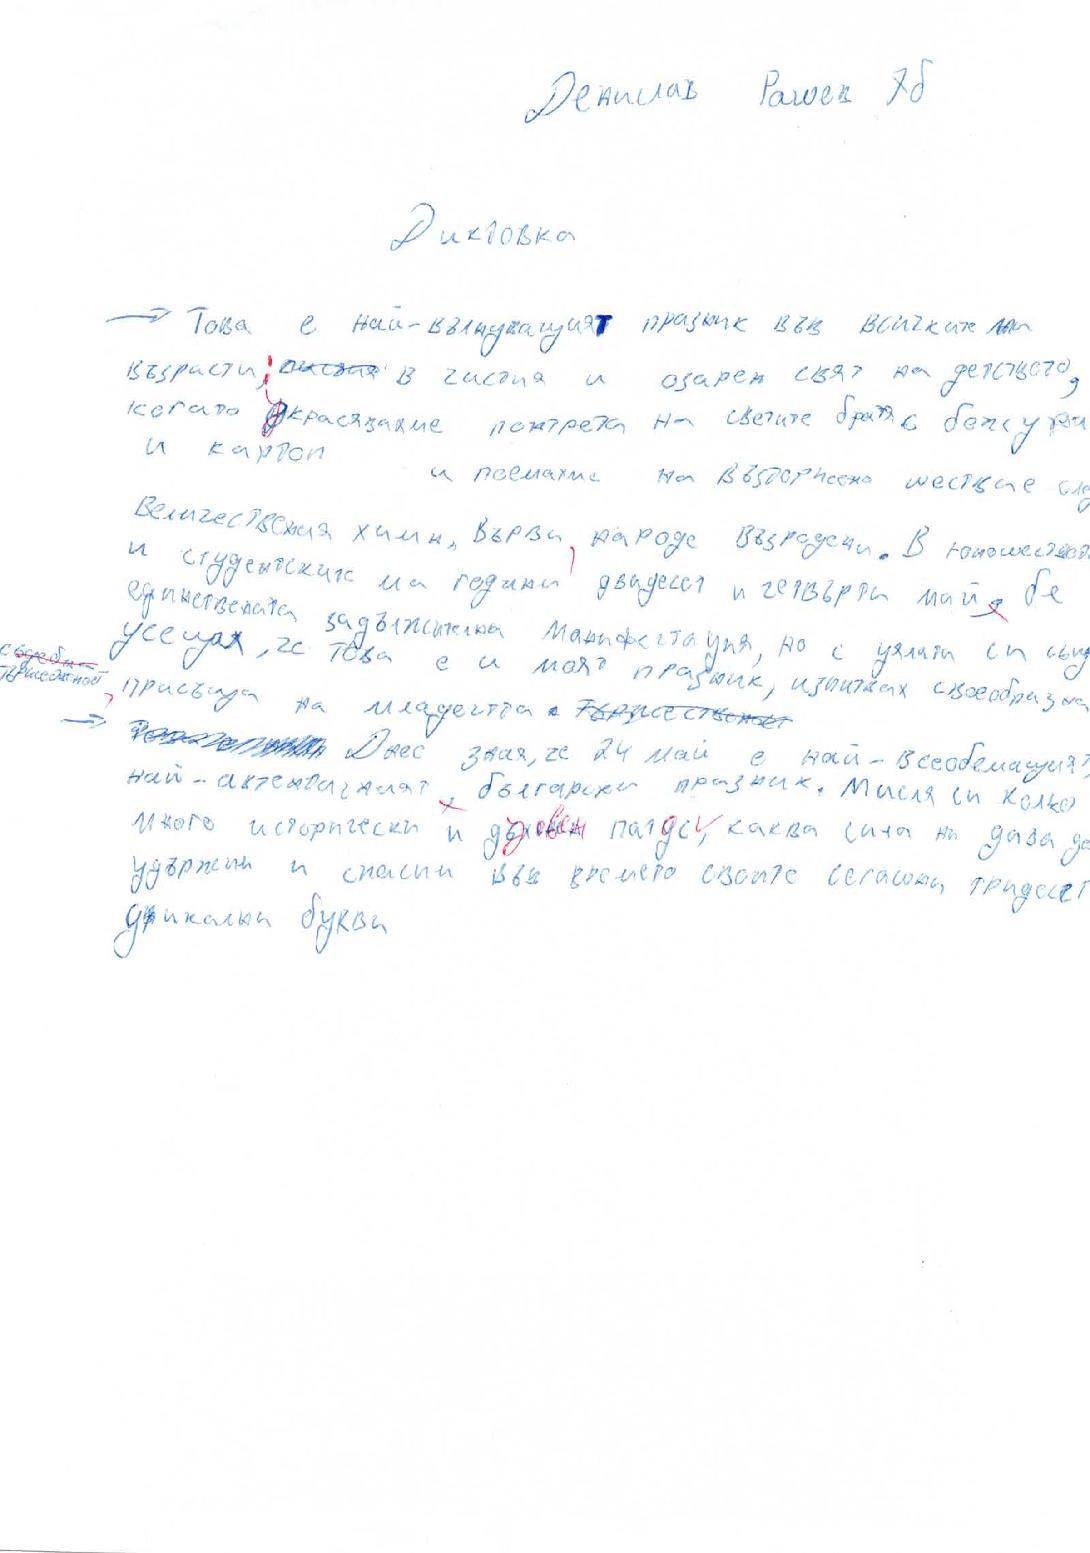 Денислав Рашев 7б
Диктовка
→ Това е най-вълнуващият празник във всичките ми
възрасти, в чистия и озарен свят на детството,
когато украсявахме портрета на светите братя с божури
и картон и поемахме на възторжено шествие след
Величествения химн, Върви, народе възродени. В юношеството
и студентските ми години двадесет и четвърти май, бе
единствената задължителна манифестация, но с цялата си
усещах, че това е и моят празник, изпитвах своеобразна
присъда на младостта.
→ Днес зная, че 24 май е най-всеобемащият
най-автентичният, български празник. Мисля си колко
много исторически и духовен патос, каква сила ни дава да
удържим и спасим във времето своите сегашни тридесет
уникални букви